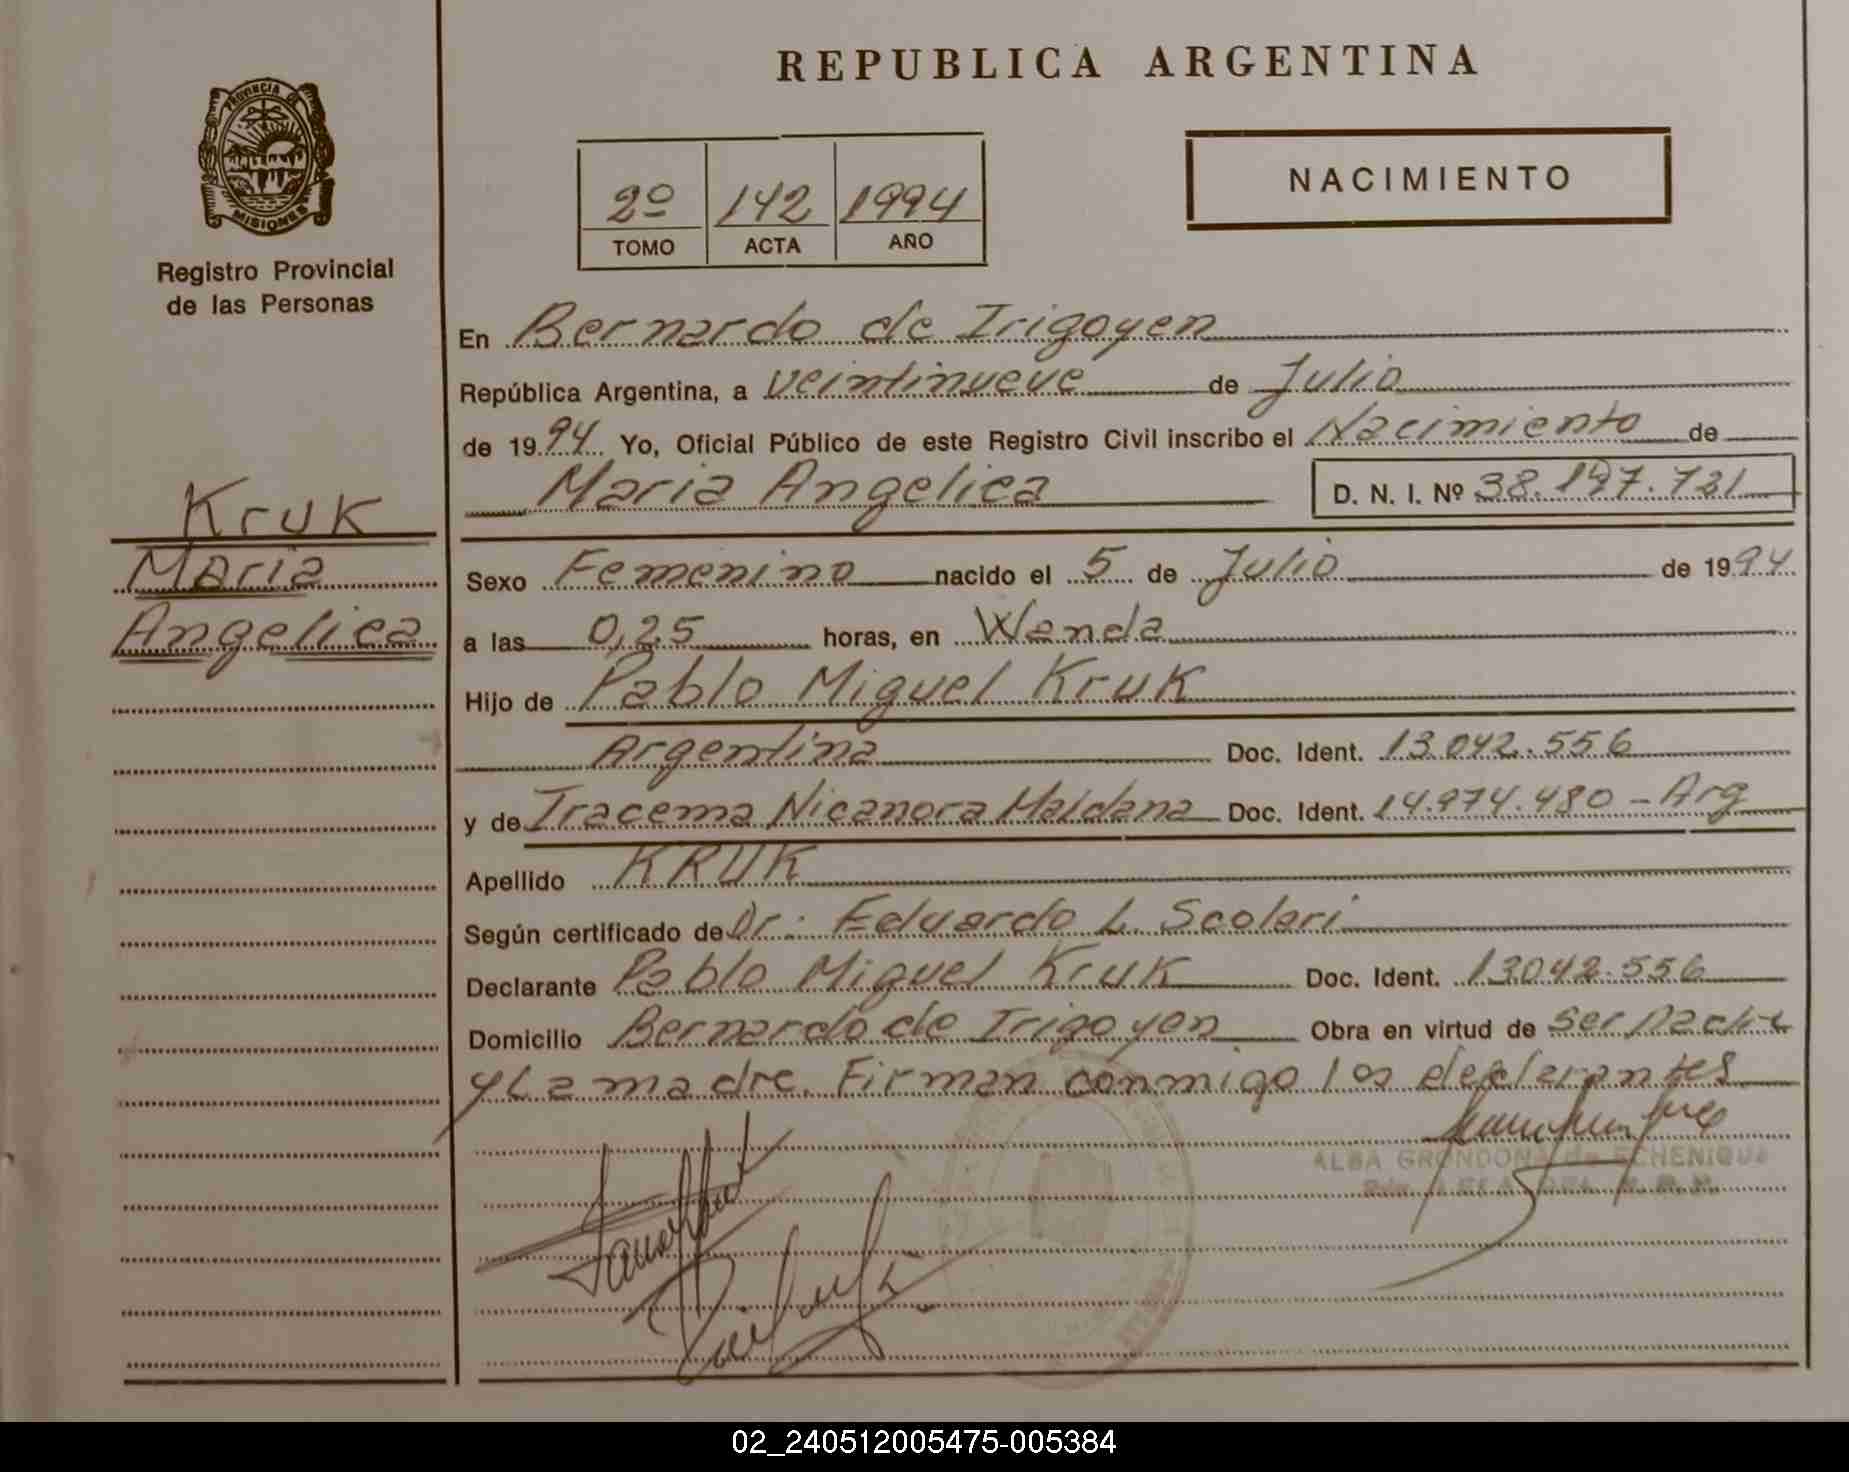 REPUBLICA ARGENTINA
PROVINCIA DE
MISIONES
Registro Provincial
de las Personas
2º 142 1994
TOMO ACTA AÑO
NACIMIENTO
En Bernardo de Irigoyen
República Argentina, a veintinueve de Julio
de 1994 Yo, Oficial Público de este Registro Civil inscribo el Nacimiento de
Maria Angelica D. N. I. Nº 38.197.721
Kruk
Maria
Angelica
Sexo Femenino nacido el 5 de Julio de 1994
a las 0,25 horas, en Wanda
Hijo de Pablo Miguel Kruk
Argentina Doc. Ident. 13.042.556
y de Iracema Nicanora Maidana Doc. Ident. 14.974.480 - Arg
Apellido KRUK
Según certificado de Dr: Eduardo L. Scolari
Declarante Pablo Miguel Kruk Doc. Ident. 13.042.556
Domicilio Bernardo de Irigoyen Obra en virtud de ser Padre
y La madre. Firman conmigo los declarantes
ALBA GRONDONA de ECHENIQUE
02_240512005475-005384